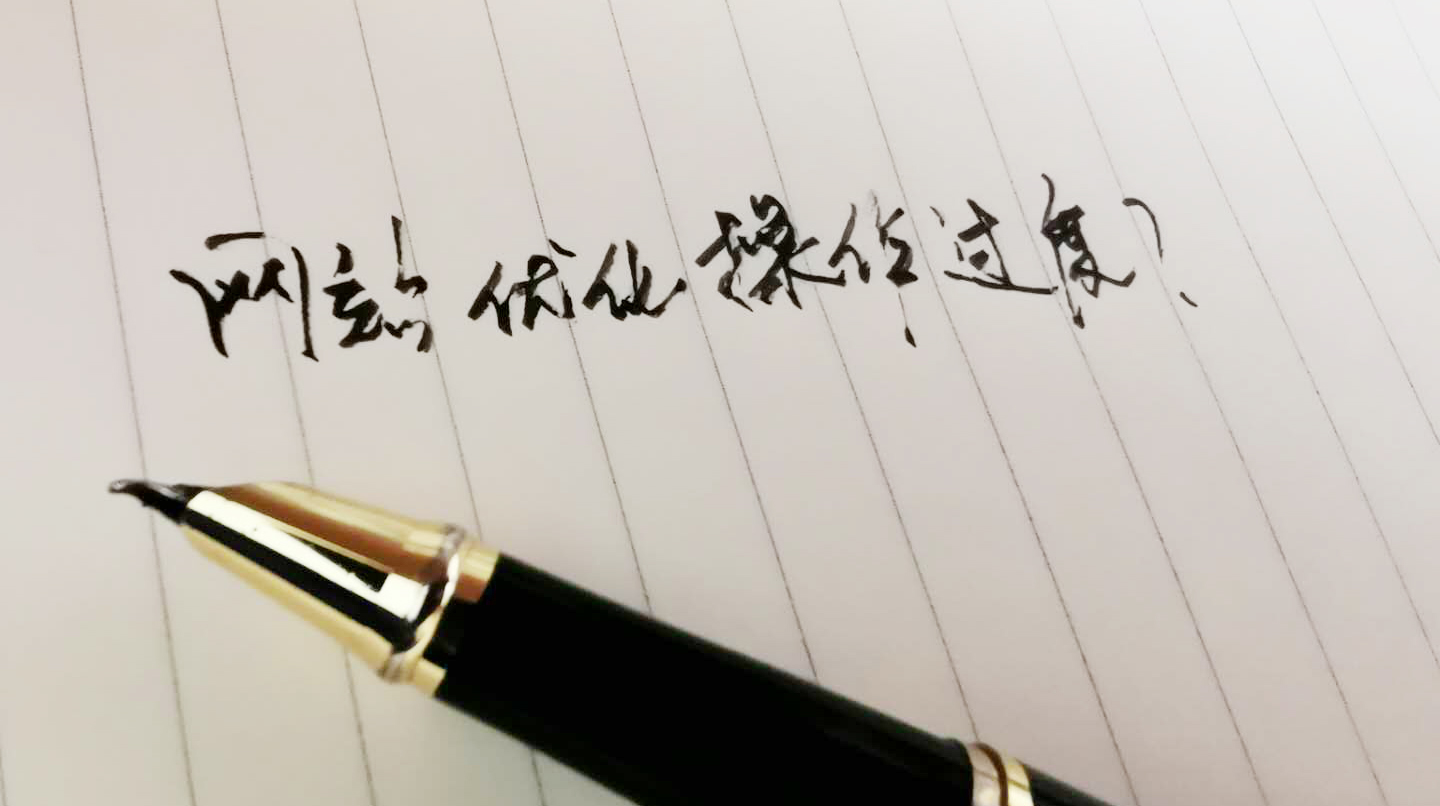 网站优化操作过度？